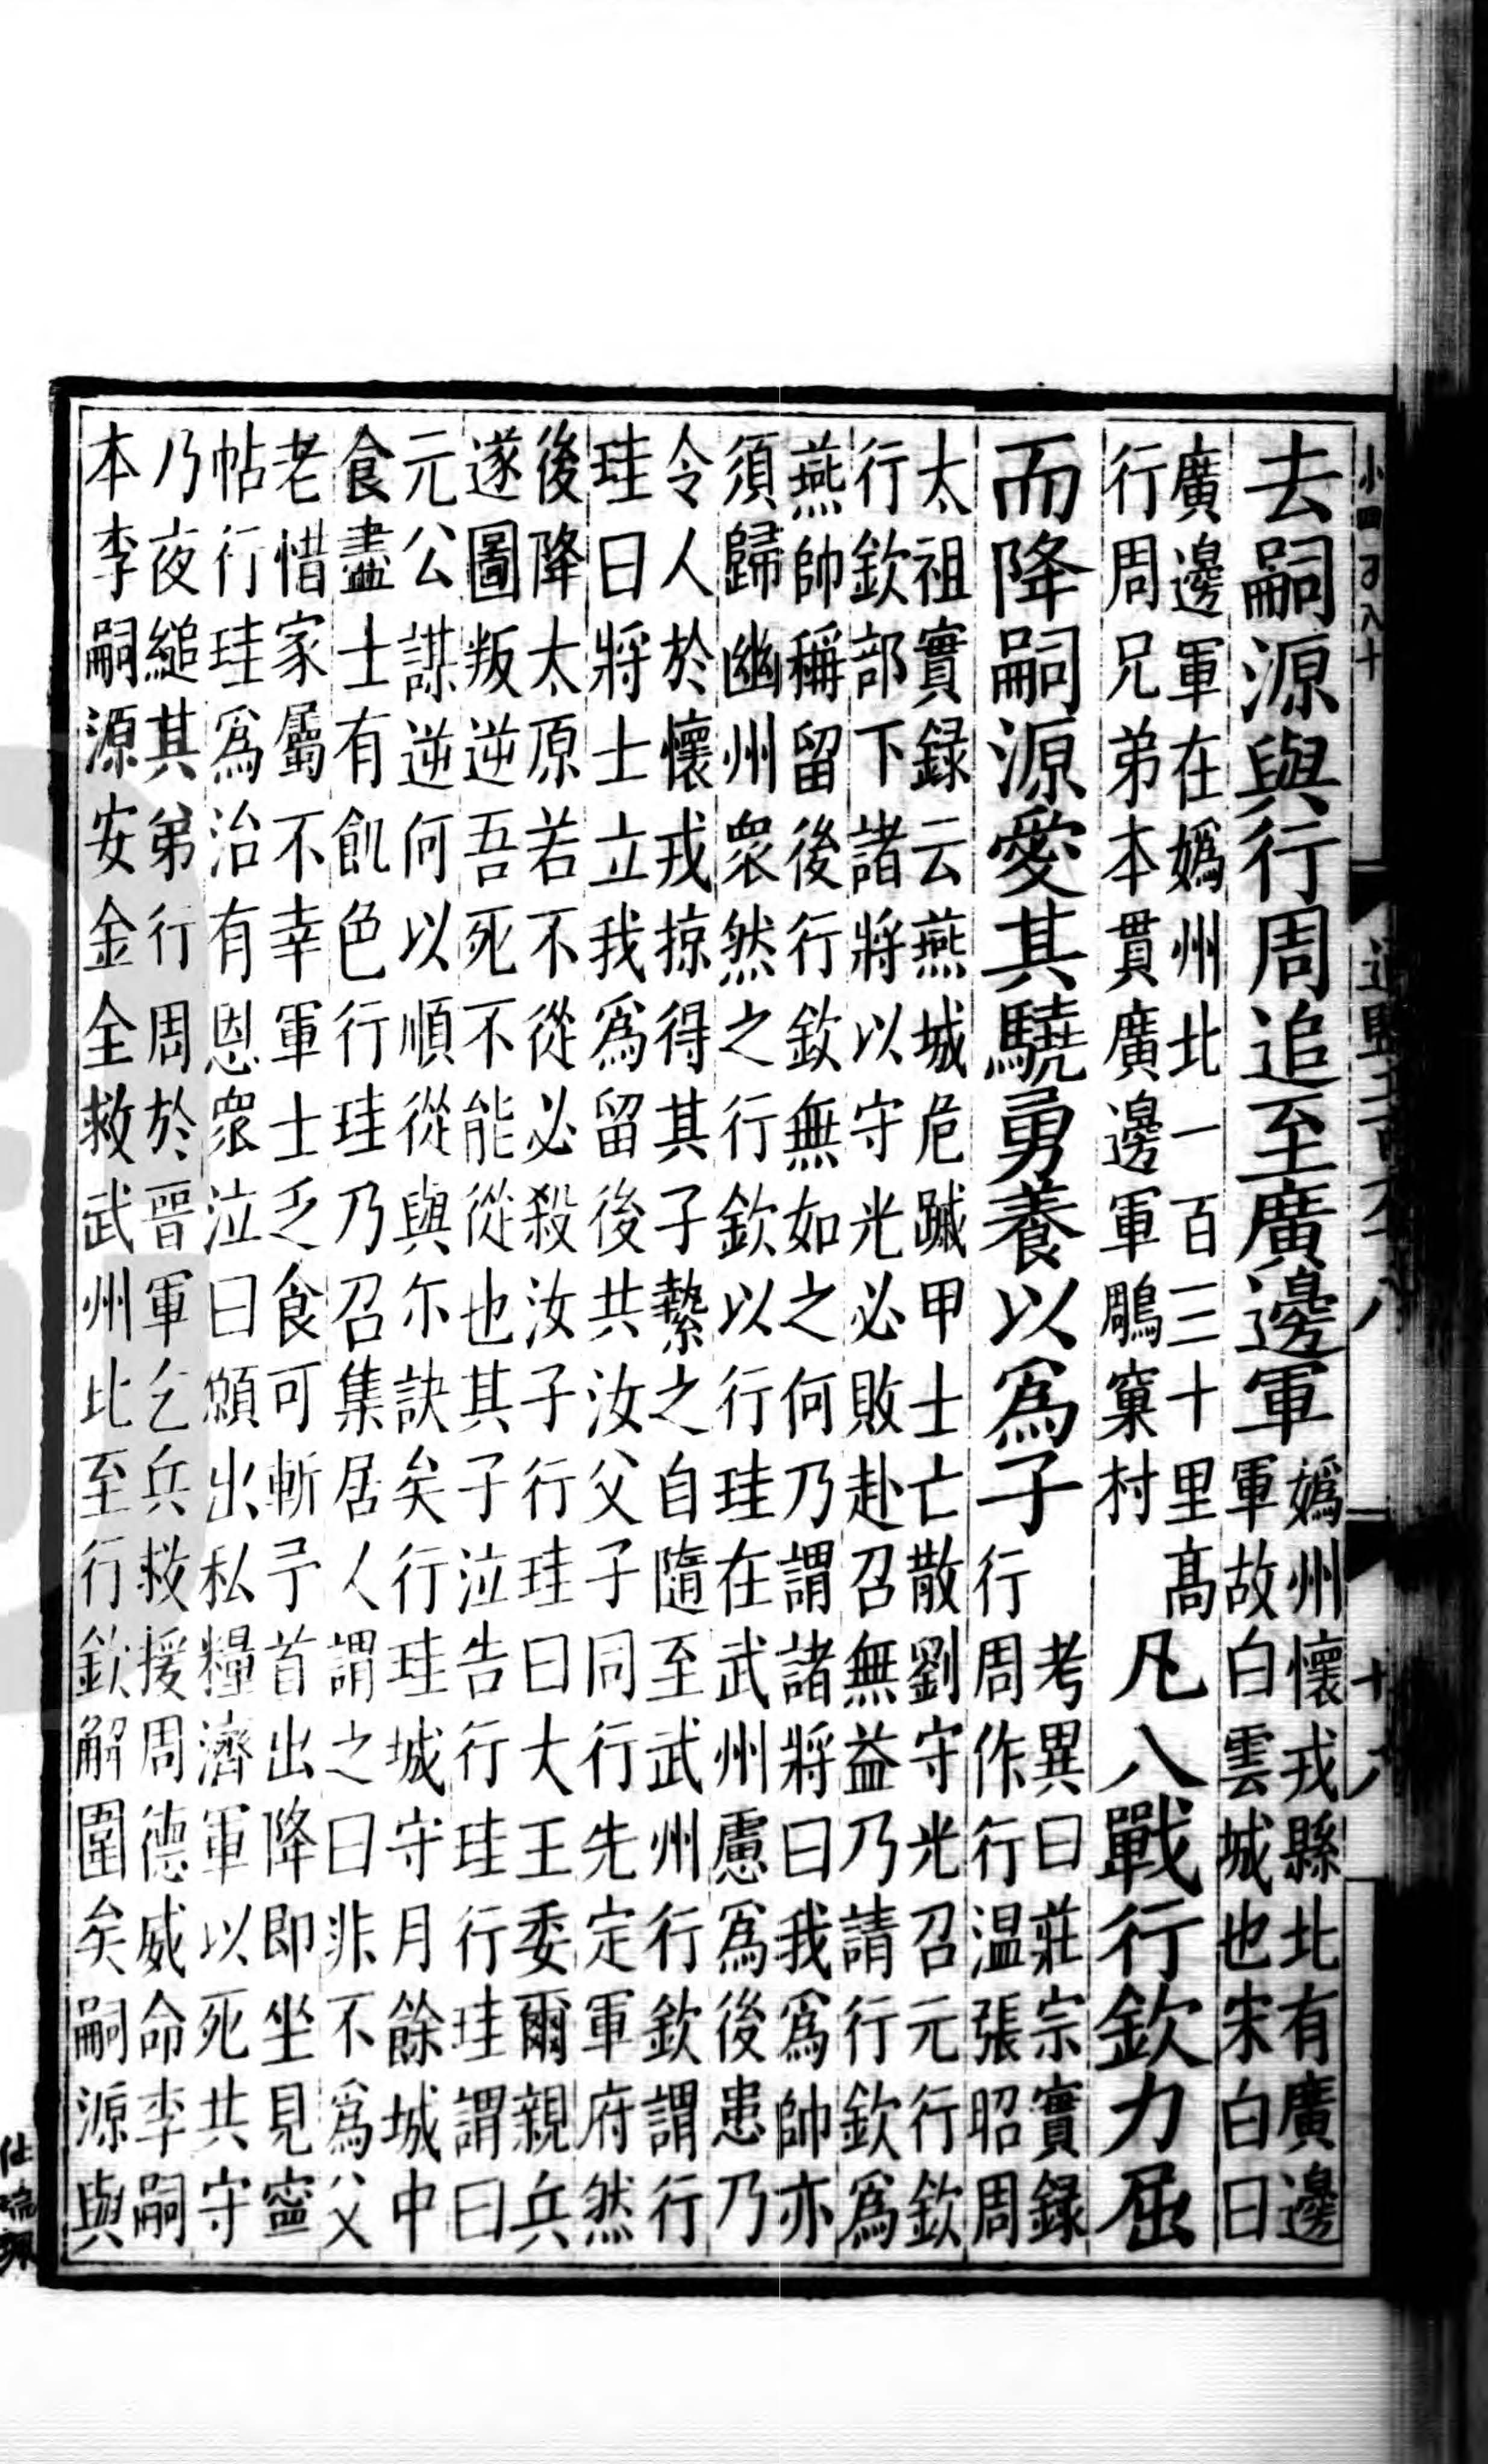 小四百八十
通鑑二百六十八
去嗣源與行周追至廣邊軍
媯州懷戎縣北有廣邊
軍故白雲城也宋白曰
廣邊軍在媯州北一百三十里髙
行周兄弟本貫廣邊軍鵰窠村
凡八戰行欽力屈
而降嗣源愛其驍勇養以爲子
考異曰莊宗實録
行周作行温張昭周
太祖實録云燕城危蹴甲士亡散劉守光召元行欽
行欽部下諸將以守光必敗赴召無益乃請行欽爲
燕帥稱留後行欽無如之何乃謂諸將曰我爲帥亦
須歸幽州衆然之行欽以行珪在武州慮爲後患乃
令人於懷戎掠得其子縶之自隨至武州行欽謂行
珪曰將士立我爲留後共汝父子同行先定軍府然
後降太原若不從必殺汝子行珪曰大王委爾親兵
遂圖叛逆吾死不能從也其子泣告行珪行珪謂曰
元公謀逆何以順從與尓訣矣行珪城守月餘城中
食盡士有飢色行珪乃召集居人謂之曰非不爲父
老惜家屬不幸軍士乏食可斬予首出降即坐見寧
帖行珪爲治有恩衆泣曰願出私糧濟軍以死共守
乃夜縋其弟行周於晉軍乞兵救援周德威命李嗣
本李嗣源安金全救武州比至行欽解圍矣嗣源與